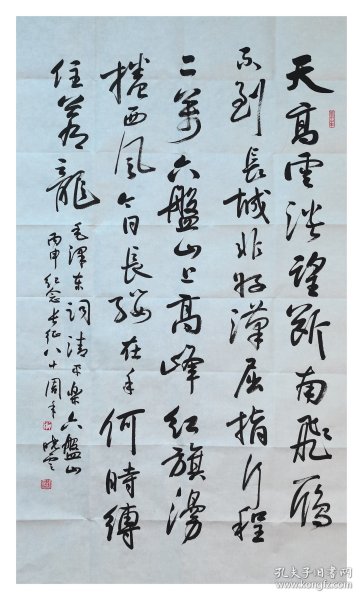 天高雲淡望斷南飛雁
不到長城非好漢屈指行程
二萬六盤山上高峰紅旗漫
捲西風今日長纓在手何時縛
住蒼龍
毛澤東詞清平樂六盤山
丙申紀念長征八十周年 曉雲
孔夫子旧书网